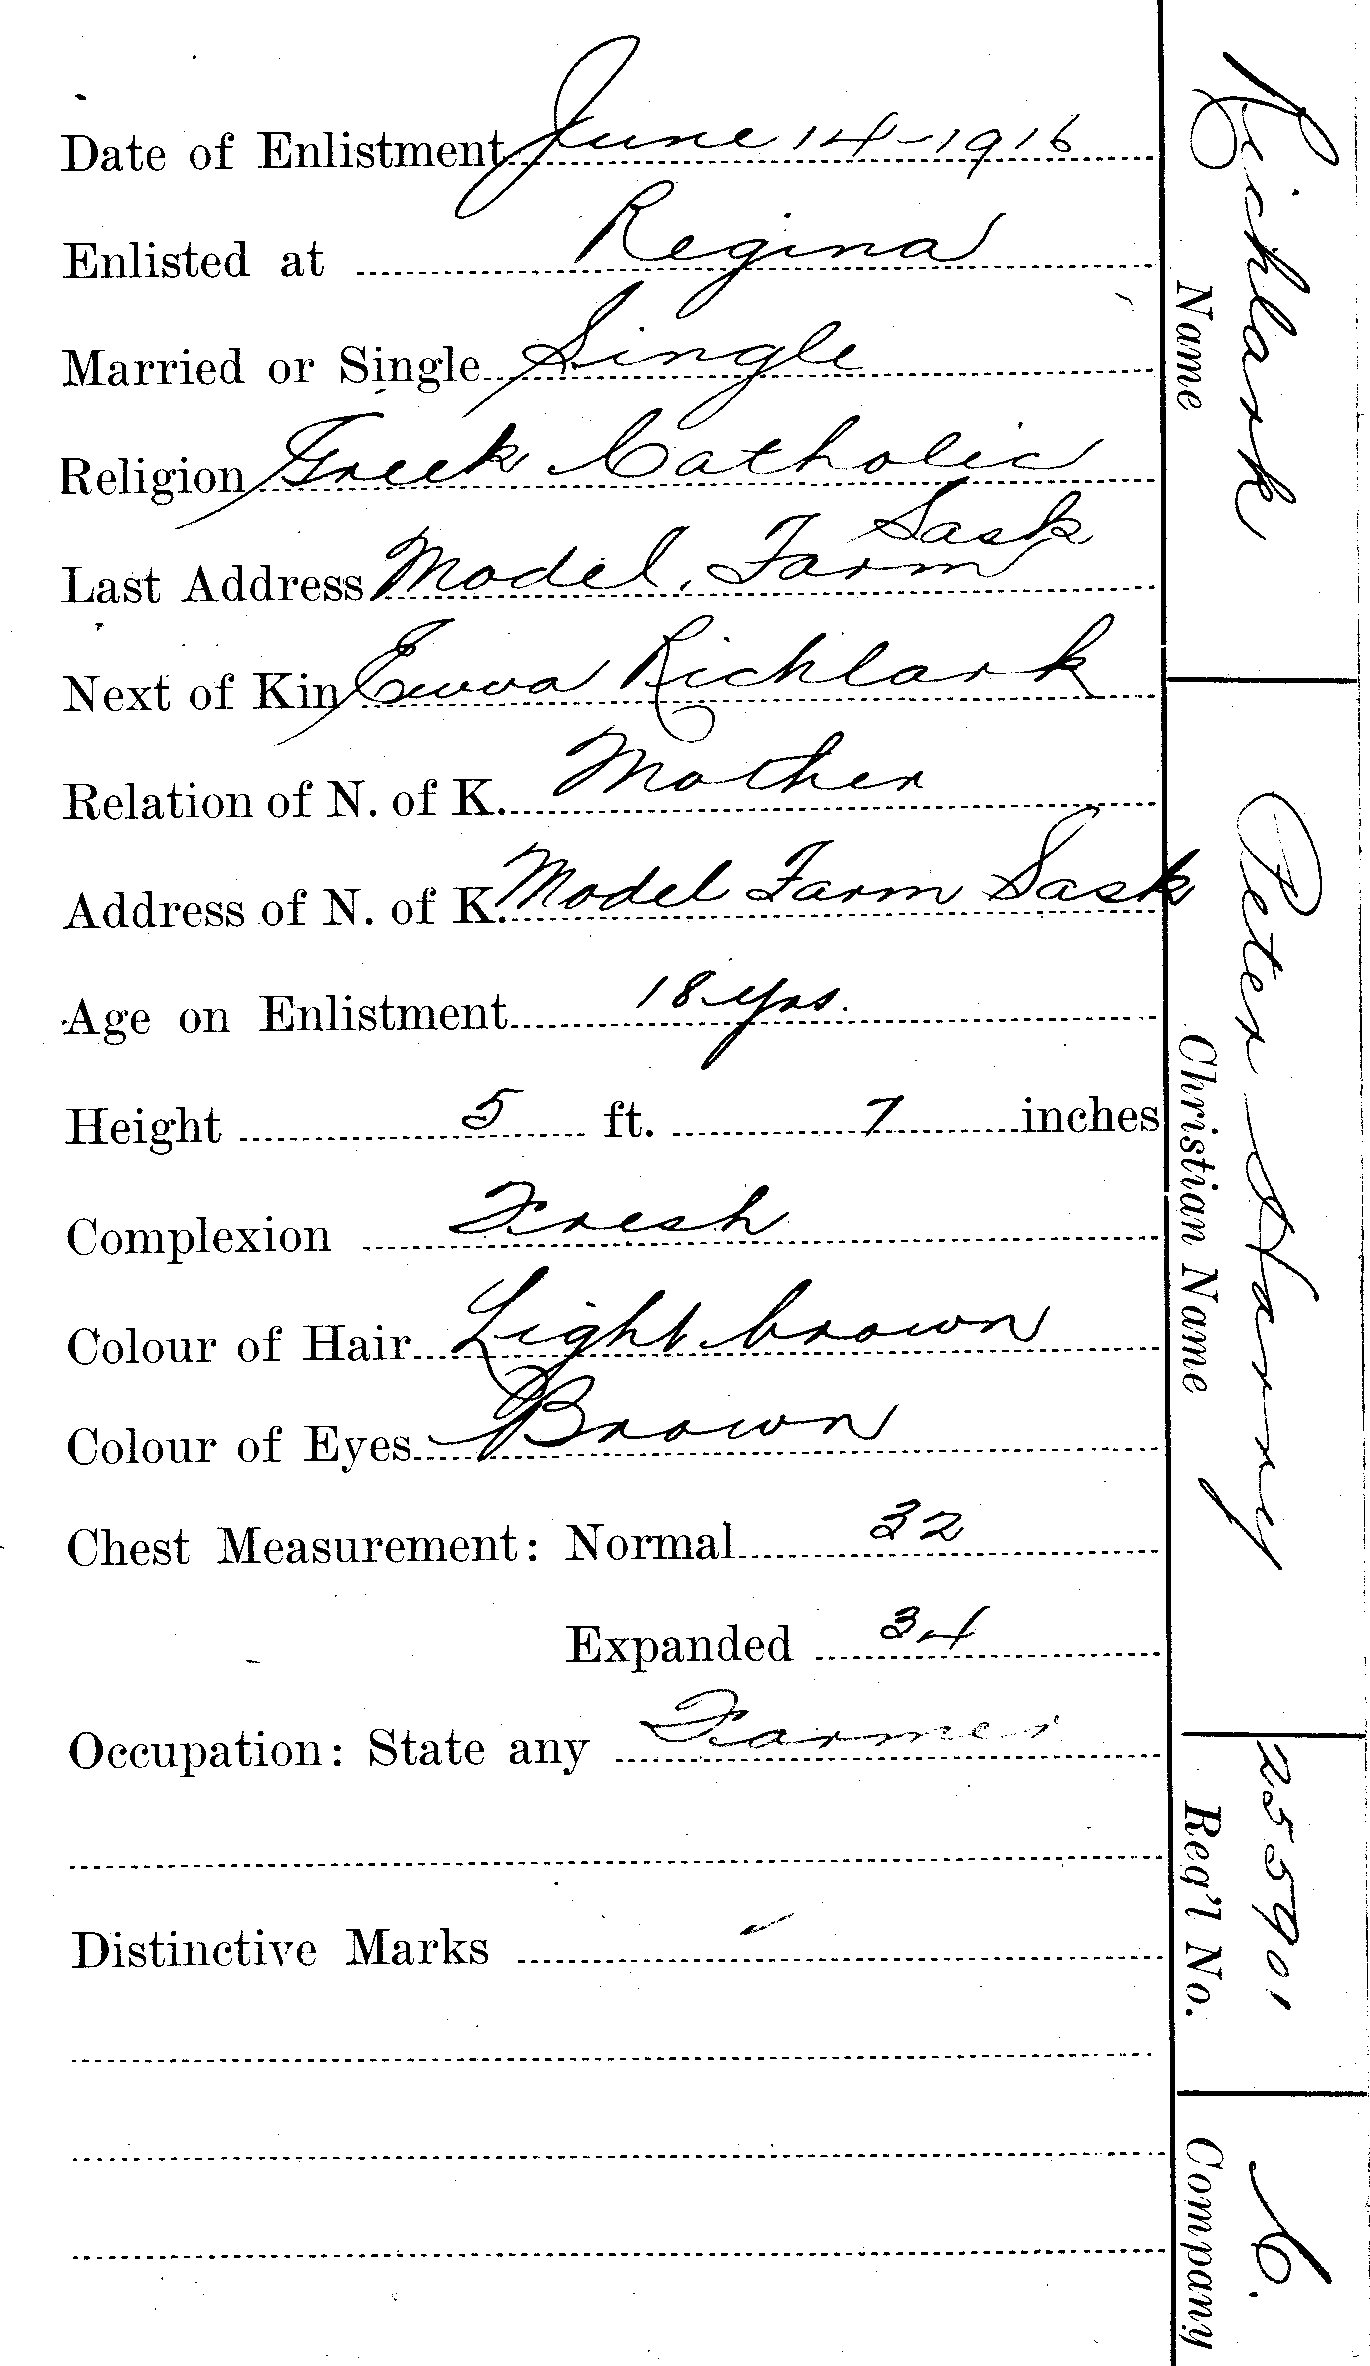 Date of Enlistment June 14-1916
Enlisted at Regina
Married or Single Single
Religion Greek Catholic
Sask
Last Address Model Farm
Next of Kin Ewva Richlark
Relation of N. of K. Mother
Address of N. of K. Model Farm Sask
Age on Enlistment 18 yrs.
Height 5 ft. 7 inches
Complexion Fresh
Colour of Hair Light brown
Colour of Eyes Brown
Chest Measurement: Normal 32
Expanded 34
Occupation: State any Farmer
Distinctive Marks
Richlark
Name
Peter Harry
Christian Name
255901
Reg'l No.
C.
Company